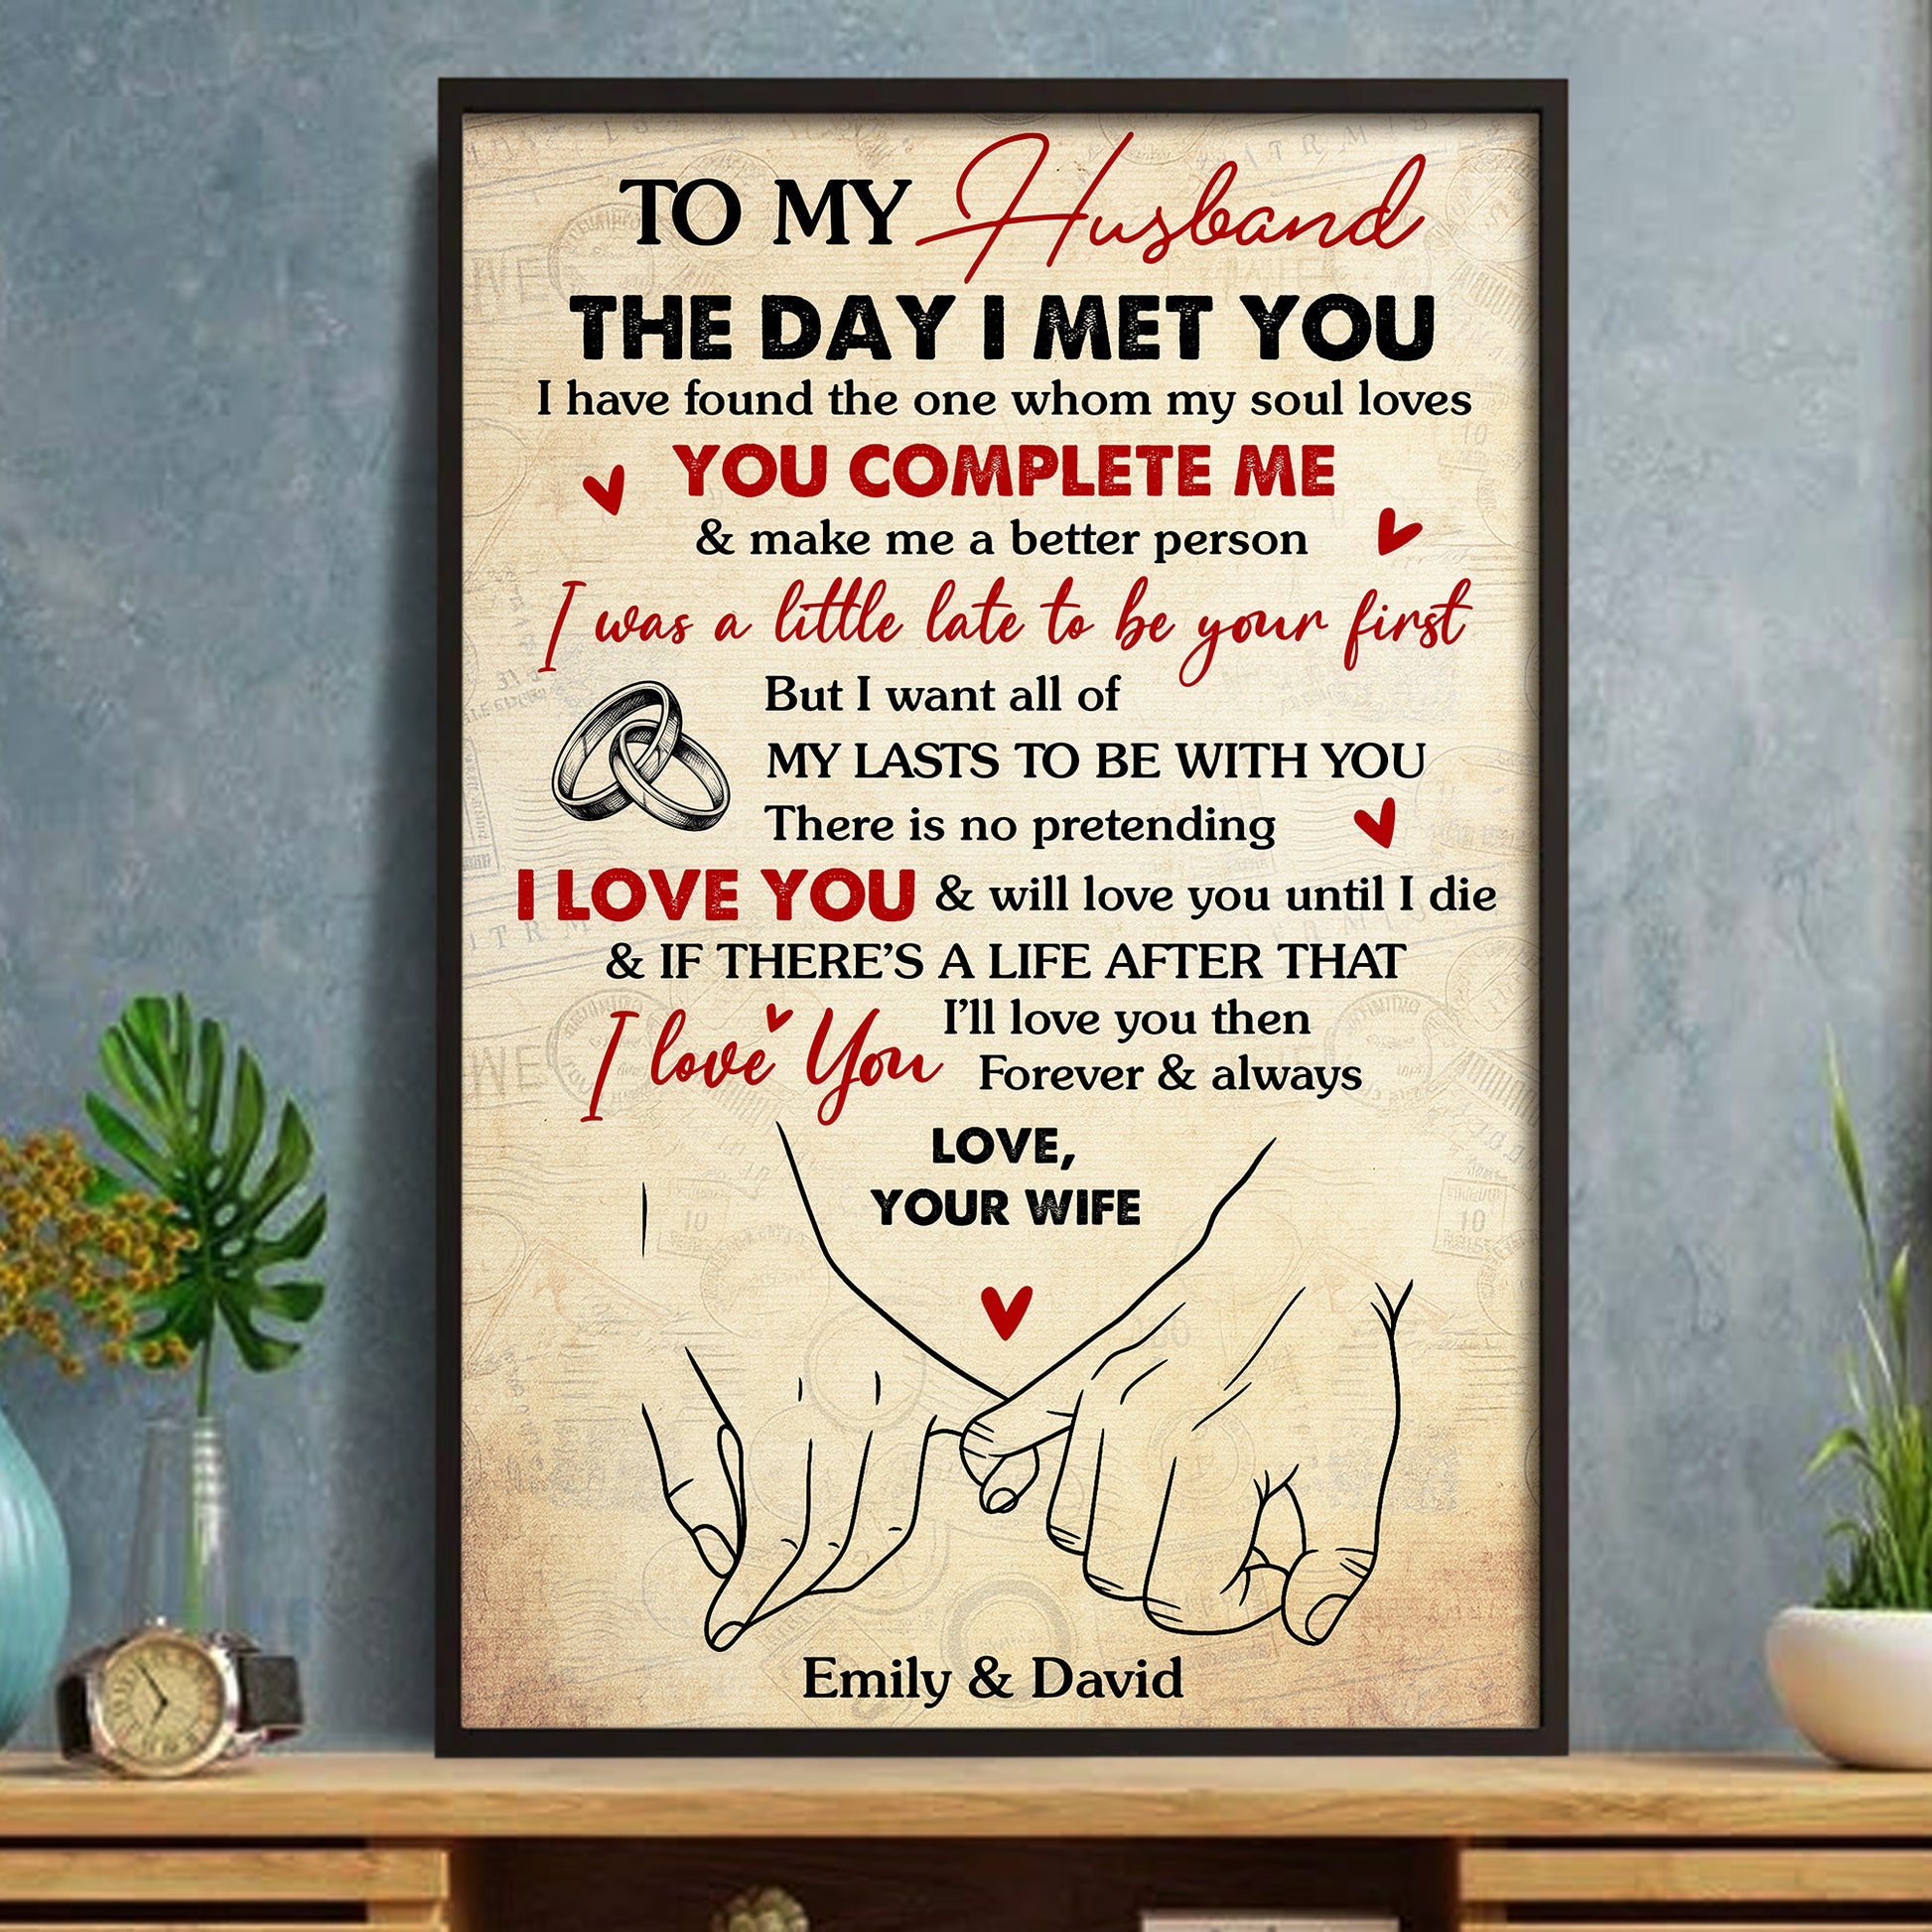 TO MY Husband
THE DAY I MET YOU
I have found the one whom my soul loves
YOU COMPLETE ME
& make me a better person
I was a little late to be your first
But I want all of
MY LASTS TO BE WITH YOU
There is no pretending
I LOVE YOU & will love you until I die
& IF THERE'S A LIFE AFTER THAT
I'll love you then
I love You
Forever & always
LOVE,
YOUR WIFE
Emily & David